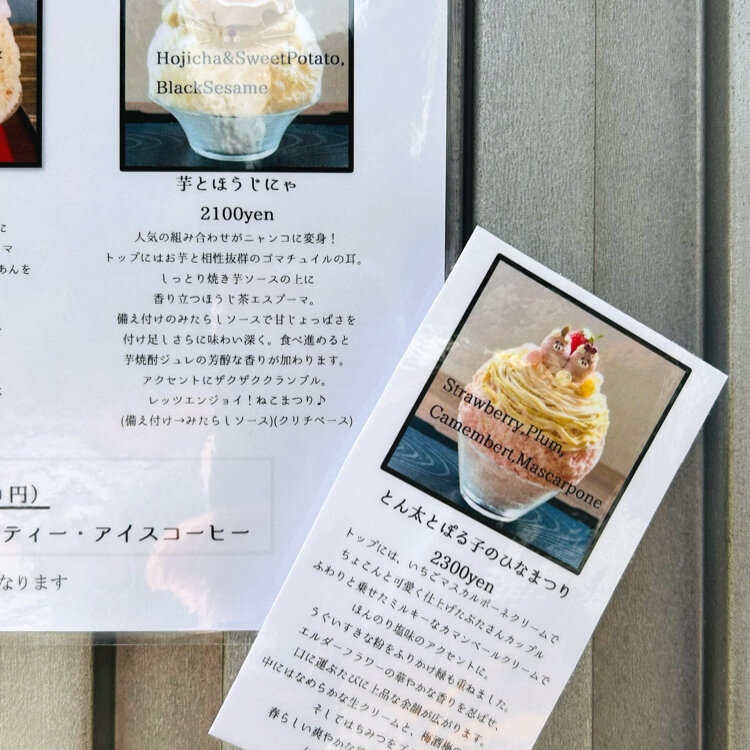 Hojicha&SweetPotato,
BlackSesame
芋とほうじにゃ
2100yen
人気の組み合わせがニャンコに変身！
トップにはお芋と相性抜群のゴマチュイルの耳。
しっとり焼き芋ソースの上に
香り立つほうじ茶エスプーマ。
備え付けのみたらしソースで甘じょっぱさを
付け足しさらに味わい深く。食べ進めると
芋焼酎ジュレの芳醇な香りが加わります。
アクセントにザクザククランブル。
レッツエンジョイ！ねこまつり♪
(備え付け→みたらしソース)(クリチベース)
に
マ
あんを
円）
ティー・アイスコーヒー
なります
Strawberry,Plum,
Camembert,Mascarpone
とん太とぽる子のひなまつり
2300yen
トップには、いちごマスカルポーネクリームで
ちょこんと可愛く仕上げたぶたさんカップル
ふわりと乗せたミルキーなカマンベールクリームで
ほんのり塩味のアクセントに。
うぐいすきな粉をふりかけ緑も重ねました。
エルダーフラワーの華やかな香りを忍ばせ、
口に運ぶたびに上品な余韻が広がります。
中にはなめらかな生クリームと、梅酒梅の
そしてはちみつを
春らしい爽やかな